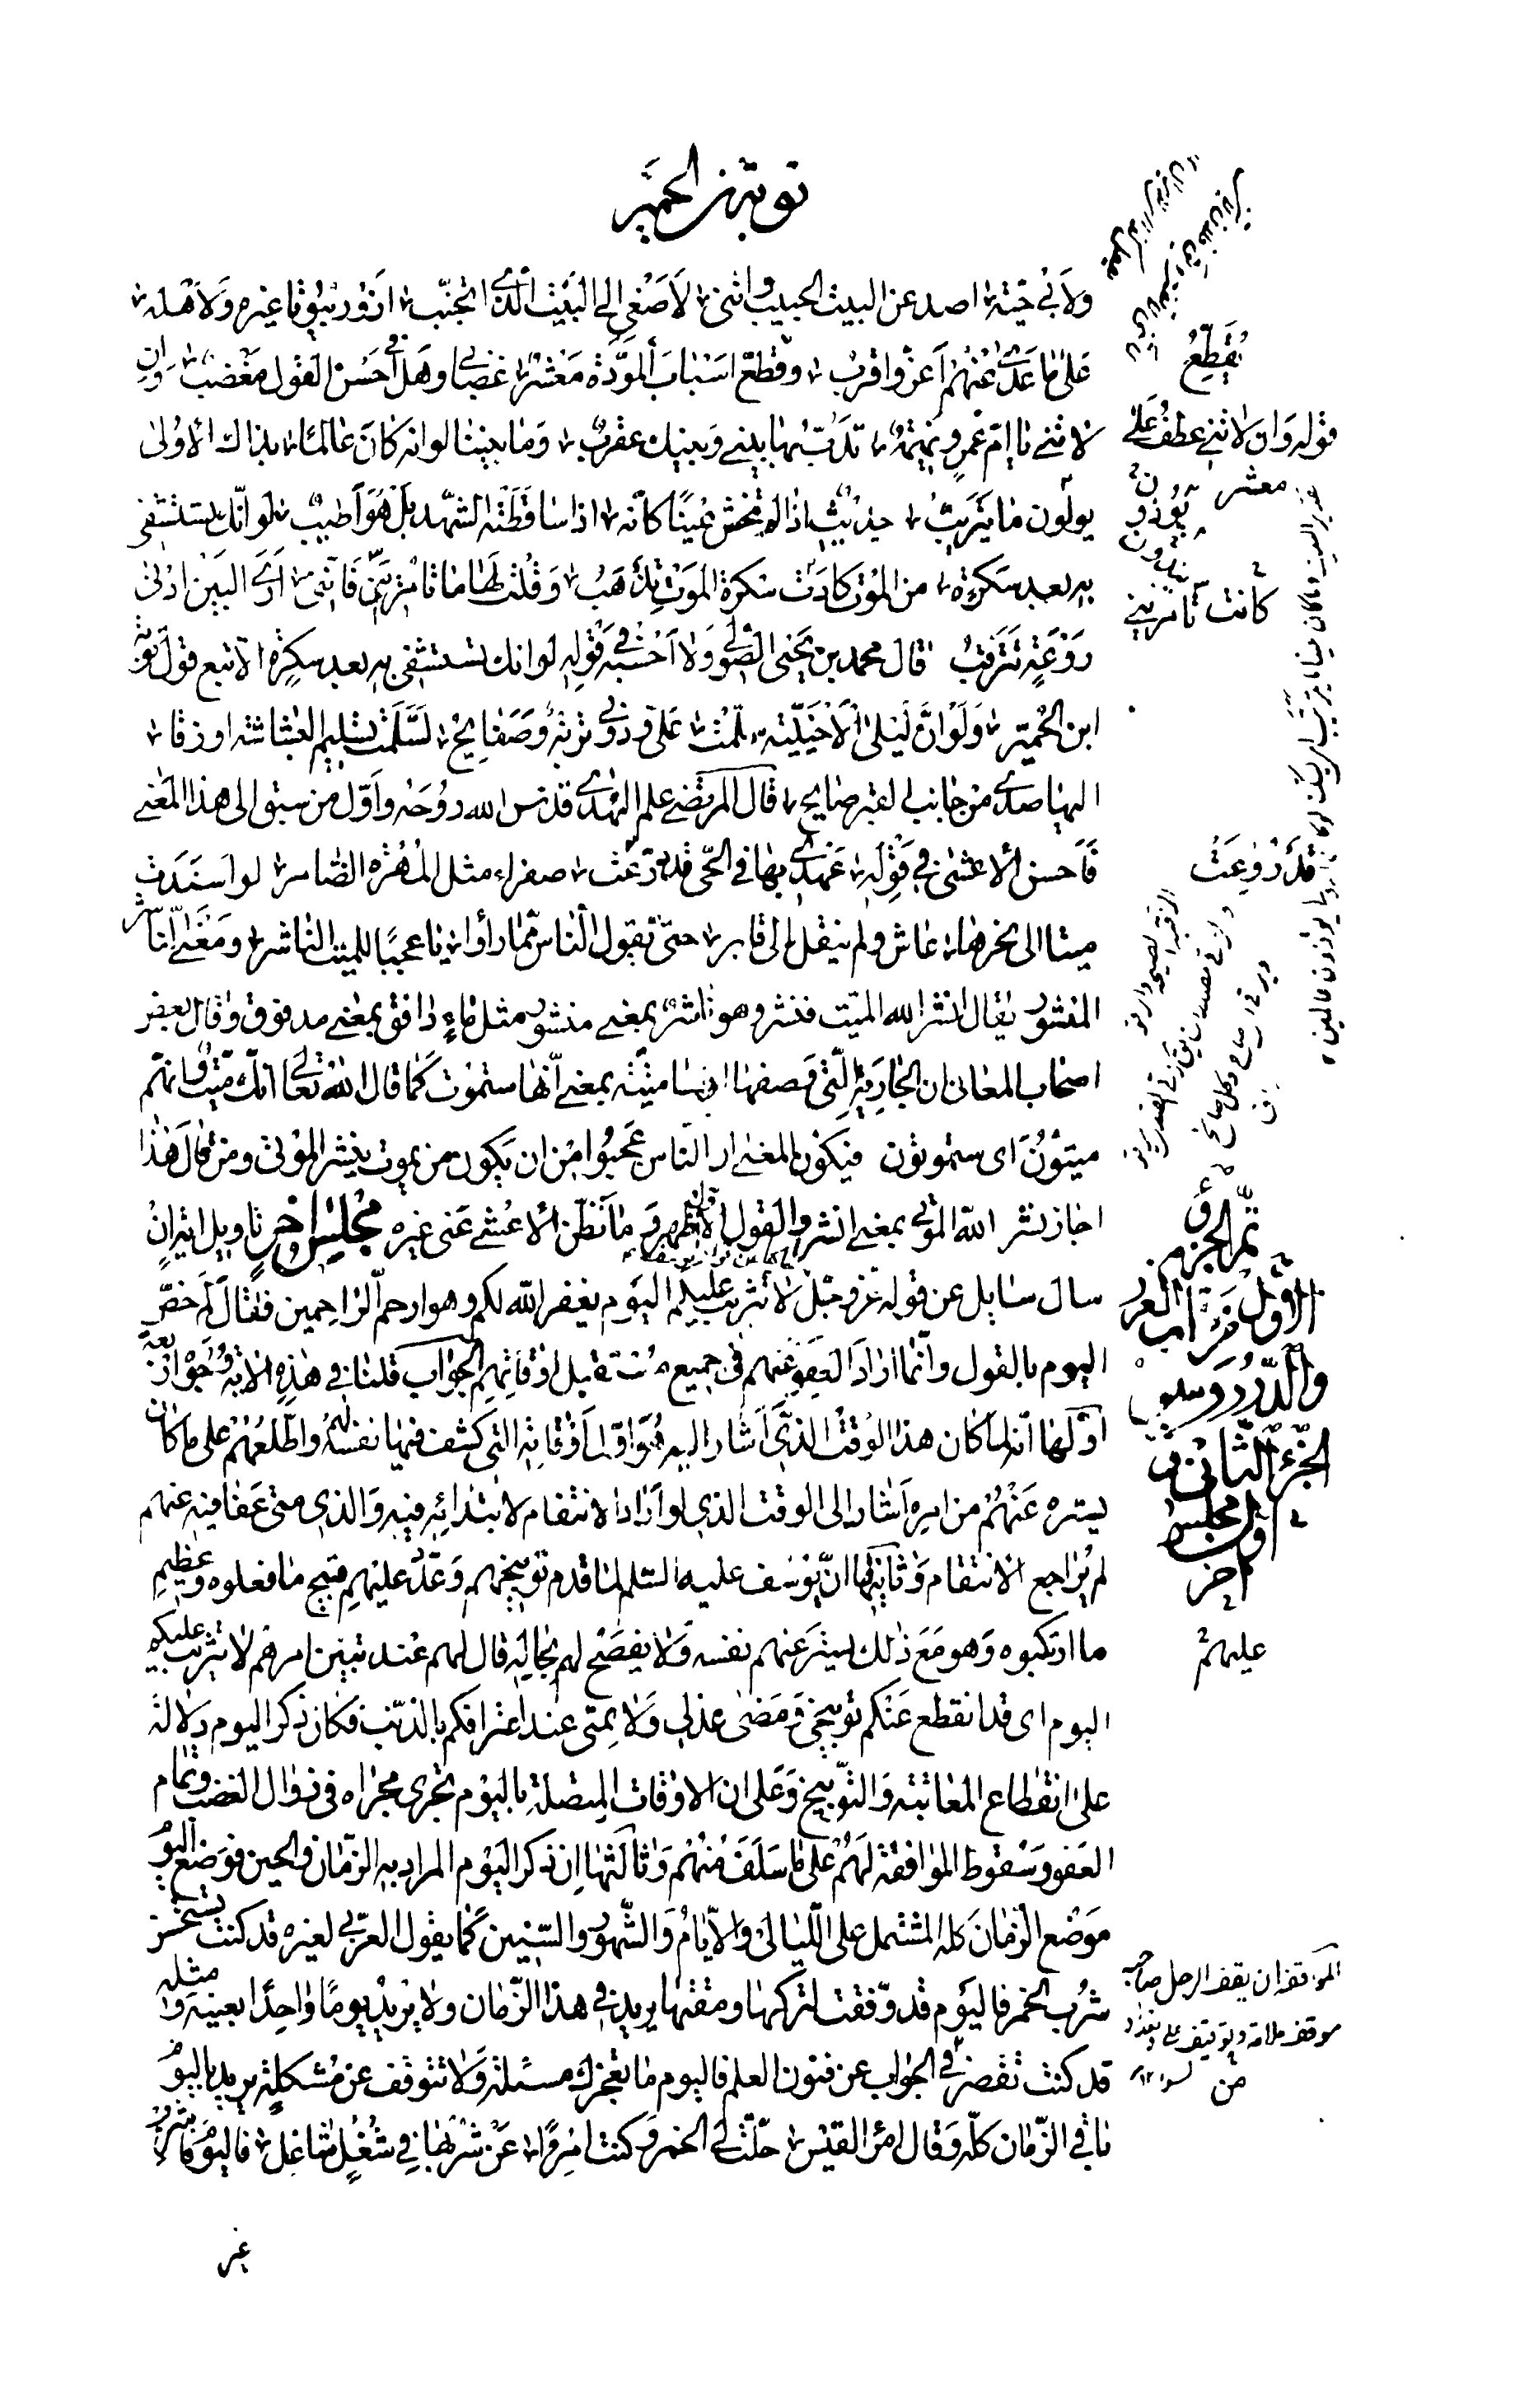 توبة بن الحمير
ولابي حية اصد عن البيت الحبيب وانني لاصغي الى البيت الذي اتجنب ازور بيوتا غيره ولاهله
على ما عدى عنهم اعز واقرب وقطع اسباب المودة معشر غضابي وهل في احسن القول مغضب وان
لاثني يا ام عمرو نميمة تدب بها بيني وبينك عقرب وما بيننا لو انه كان عالما بذاك الاولى
يولون ما يتريب حديث اذا لم تخش عينا كانه اذا ساقطته الشهد بل هو اطيب لو انك تستشفي
به بعد سكرة من الموت كادت سكرة الموت تذهب وقلت لها ما تامريني فانني ارى البين ادنى
روعة تترقب قال محمد بن يحيى الصولي ولا احسبه في قوله لو انك تستشفي به بعد سكرة الا تبع قول توبة
ابن الحمير ولو ان ليلى الاخيلية سلمت علي ودوني تربة وصفايح لسلمت تسليم البشاشة او زقا
اليها صدى من جانب القبر صايح قال المرتضى علم الهدى قدس الله روحه واول من سبق الى هذا المعنى
فاحسن الاعشى في قوله عهدي بها في الحي قد درعت صفراء مثل المهرة الضامر لو اسندت
ميتا الى نحرها عاش ولم ينقل الى قابر حتى تقول الناس مما راوا يا عجبا للميت الناشر ومعنى الناشر
المنشور يقال انشر الله الميت فنشر وهو ناشر بمعنى منشور مثل ماء دافق بمعنى مدفوق وقال بعض
اصحاب المعاني ان الجارية التي وصفها انها ميتة بمعنى انها ستموت كما قال الله تعالى انك ميت وانهم
ميتون اى ستموتون فيكون المعنى ان الناس عجبوا من ان يكون من يموت ينشر الموتى ومن قال هذا
اجاز نشر الله الموتى بمعنى انشر والقول الاول اظهر وما نظن الاعشى عنى غيره مجلس اخر تاويل اية ان
سال سايل عن قوله عز وجل لا تثريب عليكم اليوم يغفر الله لكم وهو ارحم الراحمين فقال لم خص
اليوم بالقول وانما اراد العفو عنهم في جميع مستقبل اوقاتهم الجواب قلنا في هذه الاية وجوه اربعة
اولها انه لما كان هذا الوقت الذي اشار اليه هو اول اوقاته التي كشف فيها نفسه لهم واطلعهم على ما كان
يستره عنهم من امره اشار الى الوقت الذي لو اراد الانتقام لابتدائه فيه والذي متى عفا فيه عنهم
لم يراجع الانتقام وثانيها ان يوسف عليه السلم لما قدم توبيخهم وعدد عليهم قبيح ما فعلوه وعظيم
ما ارتكبوه وهو مع ذلك يستر عنهم نفسه ولا يفصح لهم بحاله قال لهم عند تبين امرهم لا تثريب عليكم
اليوم اى قد انقطع عنكم توبيخي ومضى عذلي ولايمتي عند اعترافكم بالذنب فكان ذكر اليوم دلالة
على انقطاع المعاتبة والتوبيخ وعلى ان الاوقات المتصلة باليوم تجري مجراه في زوال الغضب وتمام
العفو وسقوط الموافقة لهم على ما سلف منهم وثالثها ان ذكر اليوم المراد به الزمان والحين فوضع اليوم
موضع الزمان كله المشتمل على الليالي والايام والشهور والسنين كما يقول العربي لغيره قد كنت تستحسن
شرب الخمر فاليوم قد وفقت لتركها ومقتها يريد في هذا الزمان ولا يريد يوما واحدا بعينه ومثله
قد كنت تقصر في الجواب عن فنون العلم فاليوم ما يعجزك مسئلة ولا تتوقف عن مشكلة يريد باليوم
باقي الزمان كله وقال امرؤ القيس حلت لي الخمر وكنت امرءا عن شربها في شغل شاغل فاليوم فاشرب
غير
يقطع
قوله وان لاثني عطف على
معشر
يؤذون
كانت تامريني
قد دوعت
تم الجزء
الاول من الغرر
والدرر ويتلوه
الجزء الثاني
اوله مجلس
اخر
عليهم
المواقفة ان يقف الرجل صاحبه
موقف ملامة